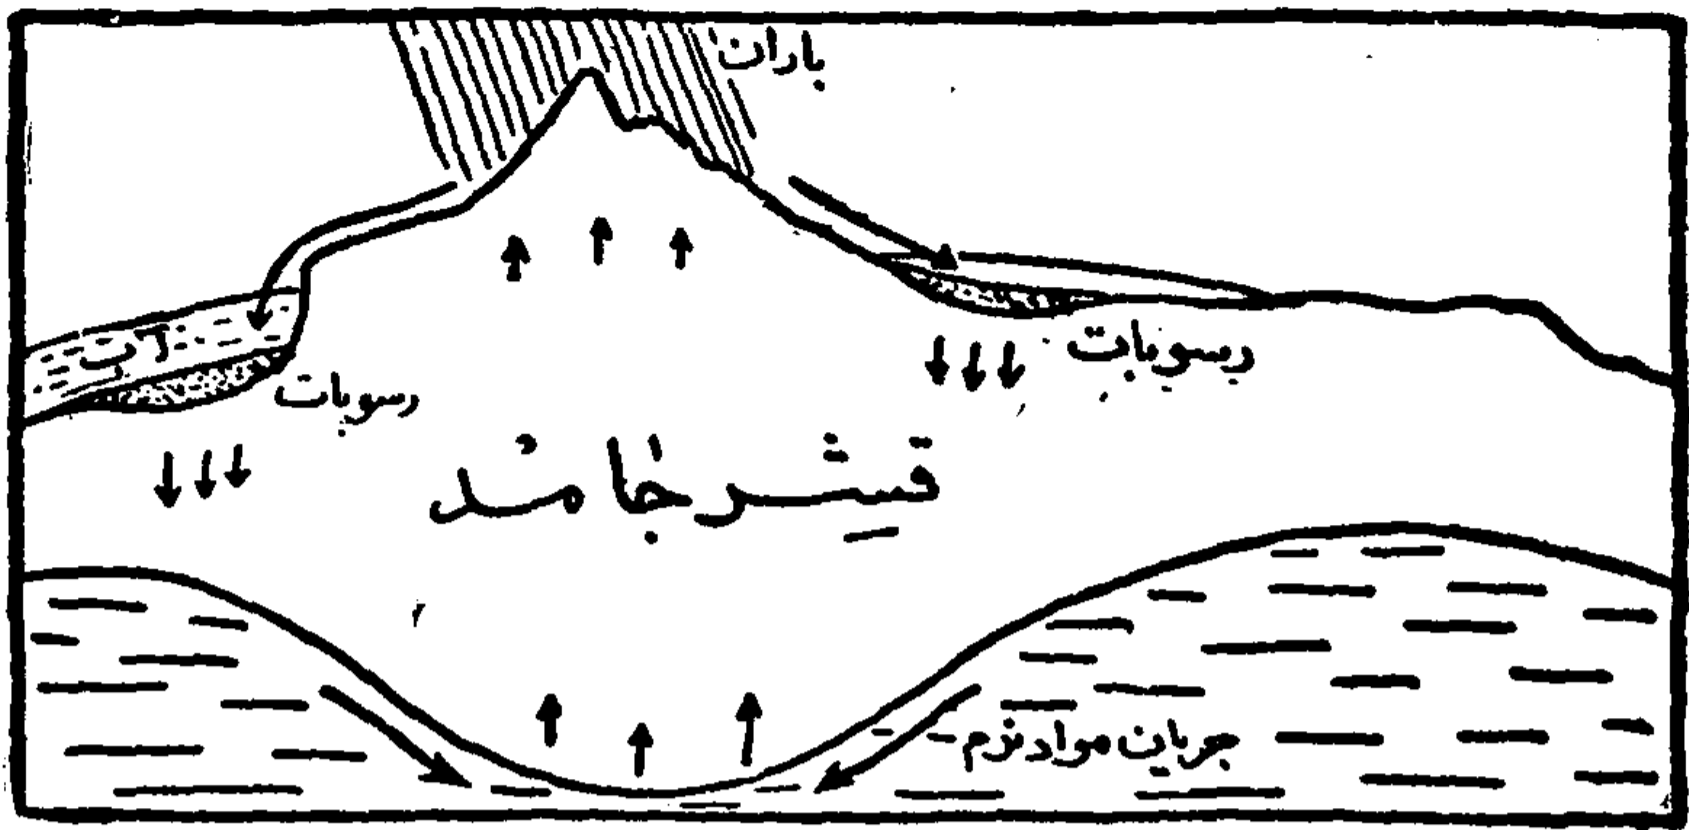 باران
آب
رسوبات
رسوبات
قشر جامد
جریان مواد نرم